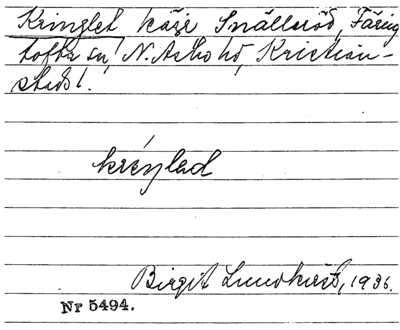 Kringlet käye Snälleröd, Färing
tofta sn, N. Åsbo hd, Kristian-
stads l.
kréŋlad
Birgit Lundkvist, 1936.
Nr 5494.